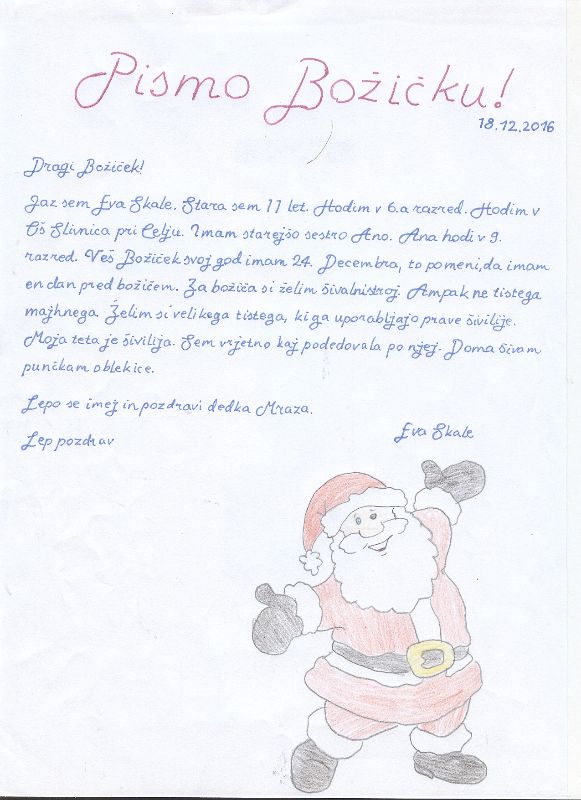 Pismo Božičku!
18.12.2016
Dragi Božiček!
Jaz sem Eva Skale. Stara sem 11 let. Hodim v 6.a razred. Hodim v
Oš Slivnica pri Celju. Imam starejšo sestro Ano. Ana hodi v 9.
razred. Veš Božiček svoj god imam 24. Decembra, to pomeni, da imam
en dan pred božičem. Za božiča si želim šivalni stroj. Ampak ne tistega
majhnega. Želim si velikega tistega, ki ga uporabljajo prave šivilije.
Moja teta je šivilija. Sem vrjetno kaj podedovala po njej. Doma šivam
punčkam oblekice.
Lepo se imej in pozdravi dedka Mraza.
Eva Skale
Lep pozdrav